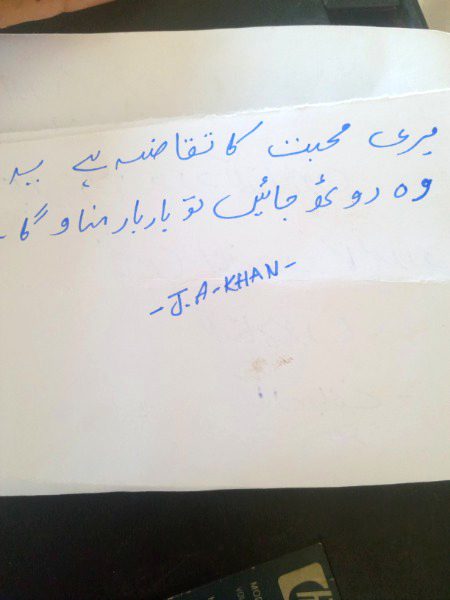 میری محبت کا تقاضہ ہے یہ
وہ روٹھ جائیں تو بار بار مناو گا۔
-J.A-KHAN-